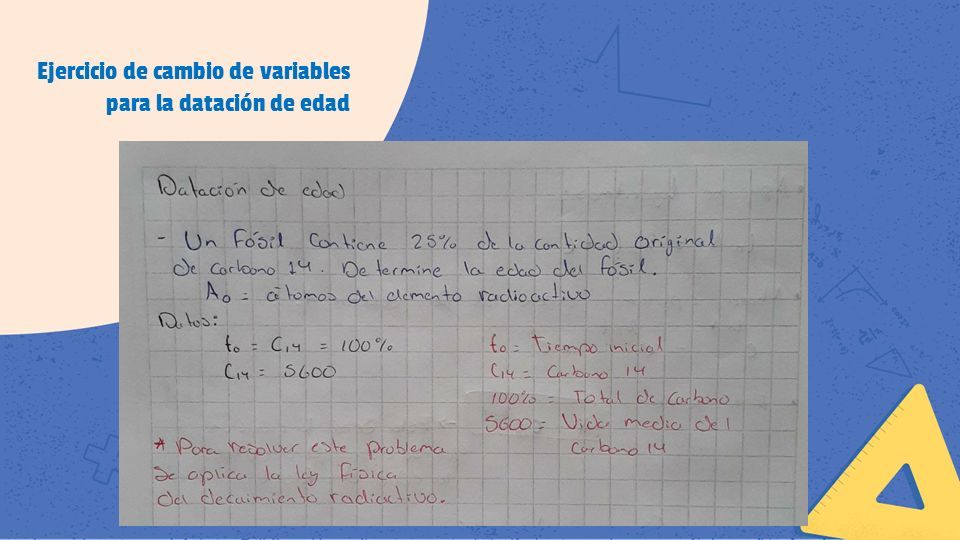 Ejercicio de cambio de variables
para la datación de edad
Datación de edad
- Un Fósil Contiene 25% de la cantidad original
de carbono 14. Determine la edad del fósil.
A₀ = átomos del elemento radioactivo
Datos:
t₀ = C₁₄ = 100%
C₁₄ = 5600
t₀ = Tiempo inicial
C₁₄ = Carbono 14
100% = Total de carbono
5600 = Vida media del
Carbono 14
* Para resolver este problema
se aplica la ley física
del decaimiento radioactivo.